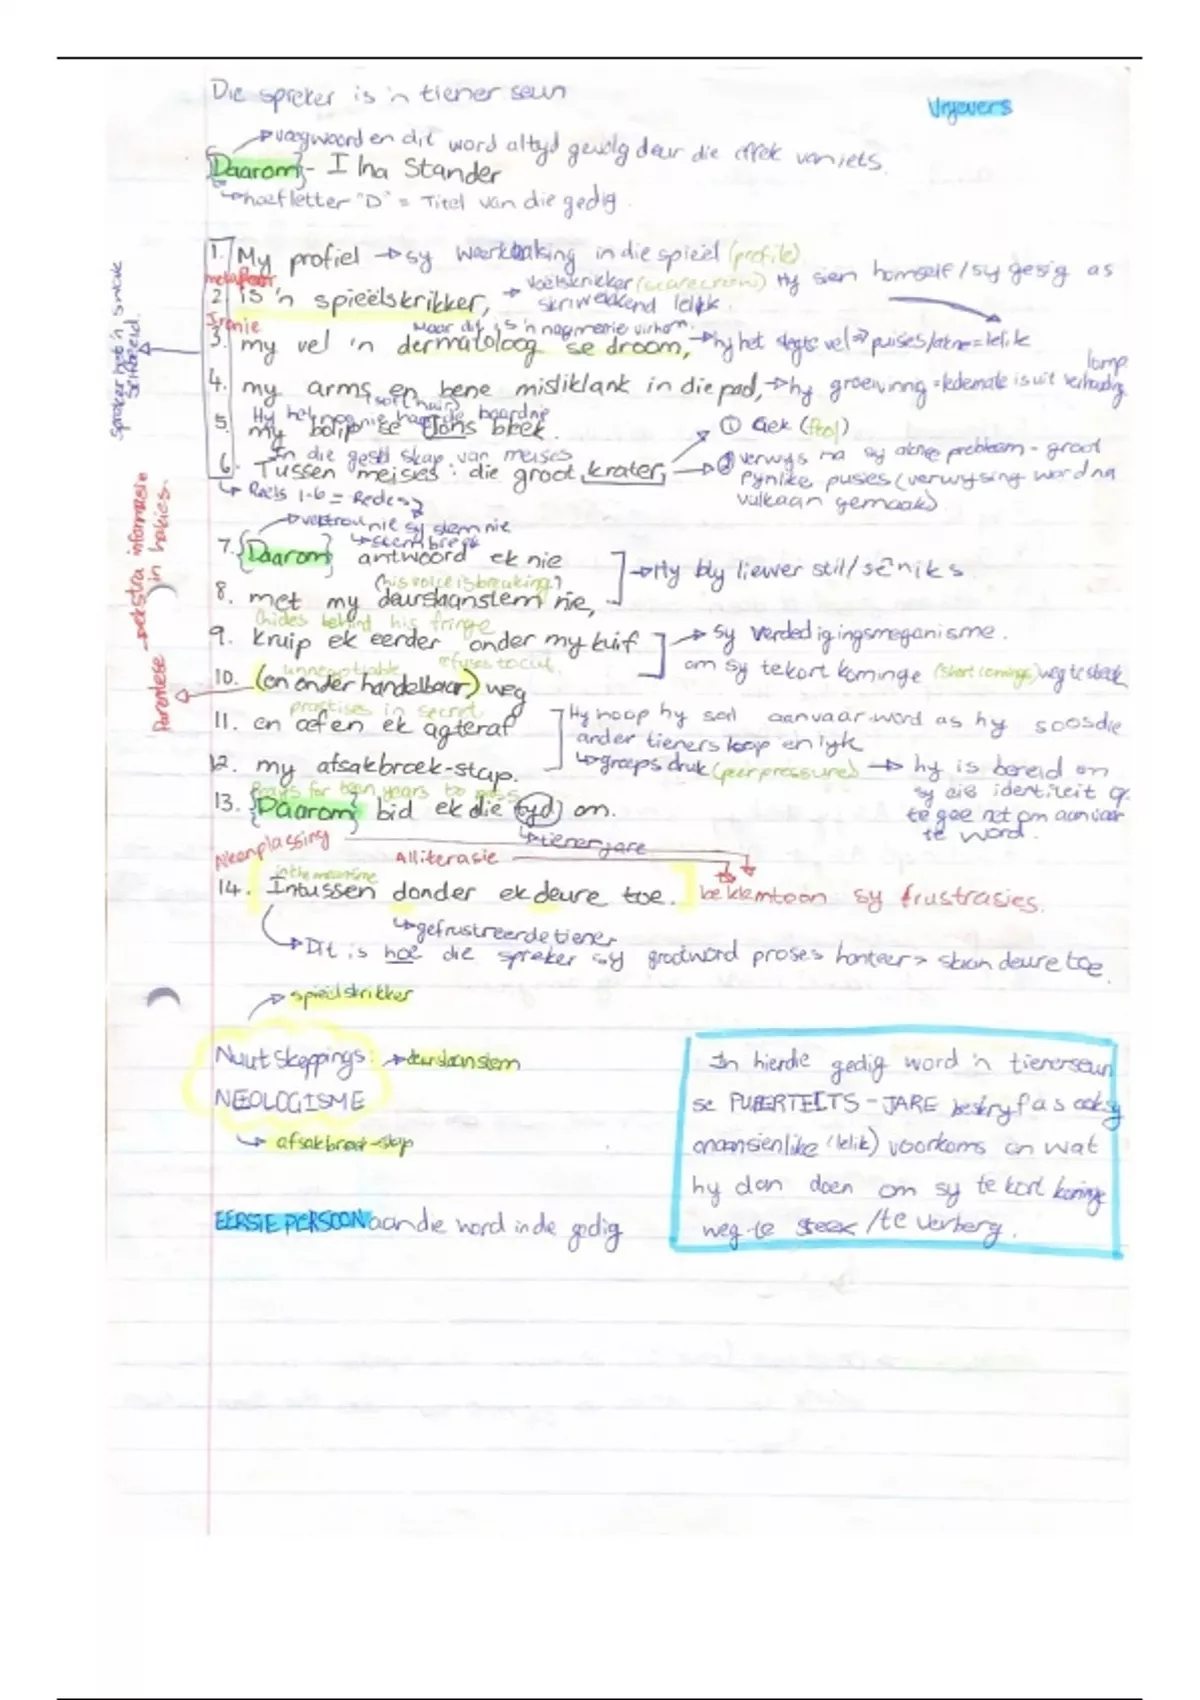 Die spreker is 'n tiener seun
Vryevers
voegwoord en dit word altyd gevolg deur die effek van iets.
{Daarom} - Ilna Stander
hoofletter "D" = Titel van die gedig.
1. My profiel → sy weerkaatsing in die spieël (profile)
metafoor
voëlskrikker (scarecrow) Hy sien homself / sy gesig as
2. is 'n spieëlskrikker, → skrikwekkend lelik.
Ironie
Maar dit is 'n nagmerrie vir hom.
3. my vel 'n dermatoloog se droom, → hy het slegte vel → puisies/akne = lelik
lomp
4. my arms en bene misliklank in die pad, → hy groei vinnig = ledemate is uit verhouding
soft hair
Hy het nog nie harde baard nie
5. my bolip se dons breek.
① Gek (fool)
In die geselskap van meises
6. Tussen meises: die groot krater, → ② verwys na sy akne probleem - groot
pynlike puises (verwysing word na
vulkaan gemaak)
Reëls 1-6 = Redes
Spreker het 'n swak selfbeeld.
vertrou nie sy stem nie
stem breek
7. {Daarom} antwoord ek nie
Hy bly liewer stil / sê niks
(his voice is breaking)
8. met my deurslaanstem nie,
(hides behind his fringe
9. kruip ek eerder onder my kuif → sy verdedigingsmeganisme.
om sy tekort kominge (short comings) weg te steek
unnegotiable refuses to cut
10. (on onder handelbaar) weg
Parentese → ekstra informasie in hakies.
practises in secret
11. en oefen ek agteraf
Hy hoop hy sal aanvaar word as hy soos die
ander tieners loop en lyk
12. my afsakbroek-stap.
groeps druk (peer pressure) → hy is bereid om
sy eie identiteit op
te gee net om aanvaar
te word.
Prays for teen years to pass
13. {Daarom} bid ek die tyd om.
tienerjare
Alliterasie
in the meantime
14. Intussen donder ek deure toe. beklemtoon sy frustrasies.
gefrustreerde tiener
Dit is hoe die spreker sy grootword proses hanteer > slaan deure toe.
spieëlskrikker
Nuutskeppings: → deurslaanstem
NEOLOGISME
afsakbroek-stap
EERSTE PERSOON aan die word in die gedig
In hierdie gedig word 'n tienerseun
se PUBERTEITS-JARE beskryf as ook sy
onaansienlike (lelik) voorkoms en wat
hy dan doen om sy tekort kominge
weg te steek / te verberg.